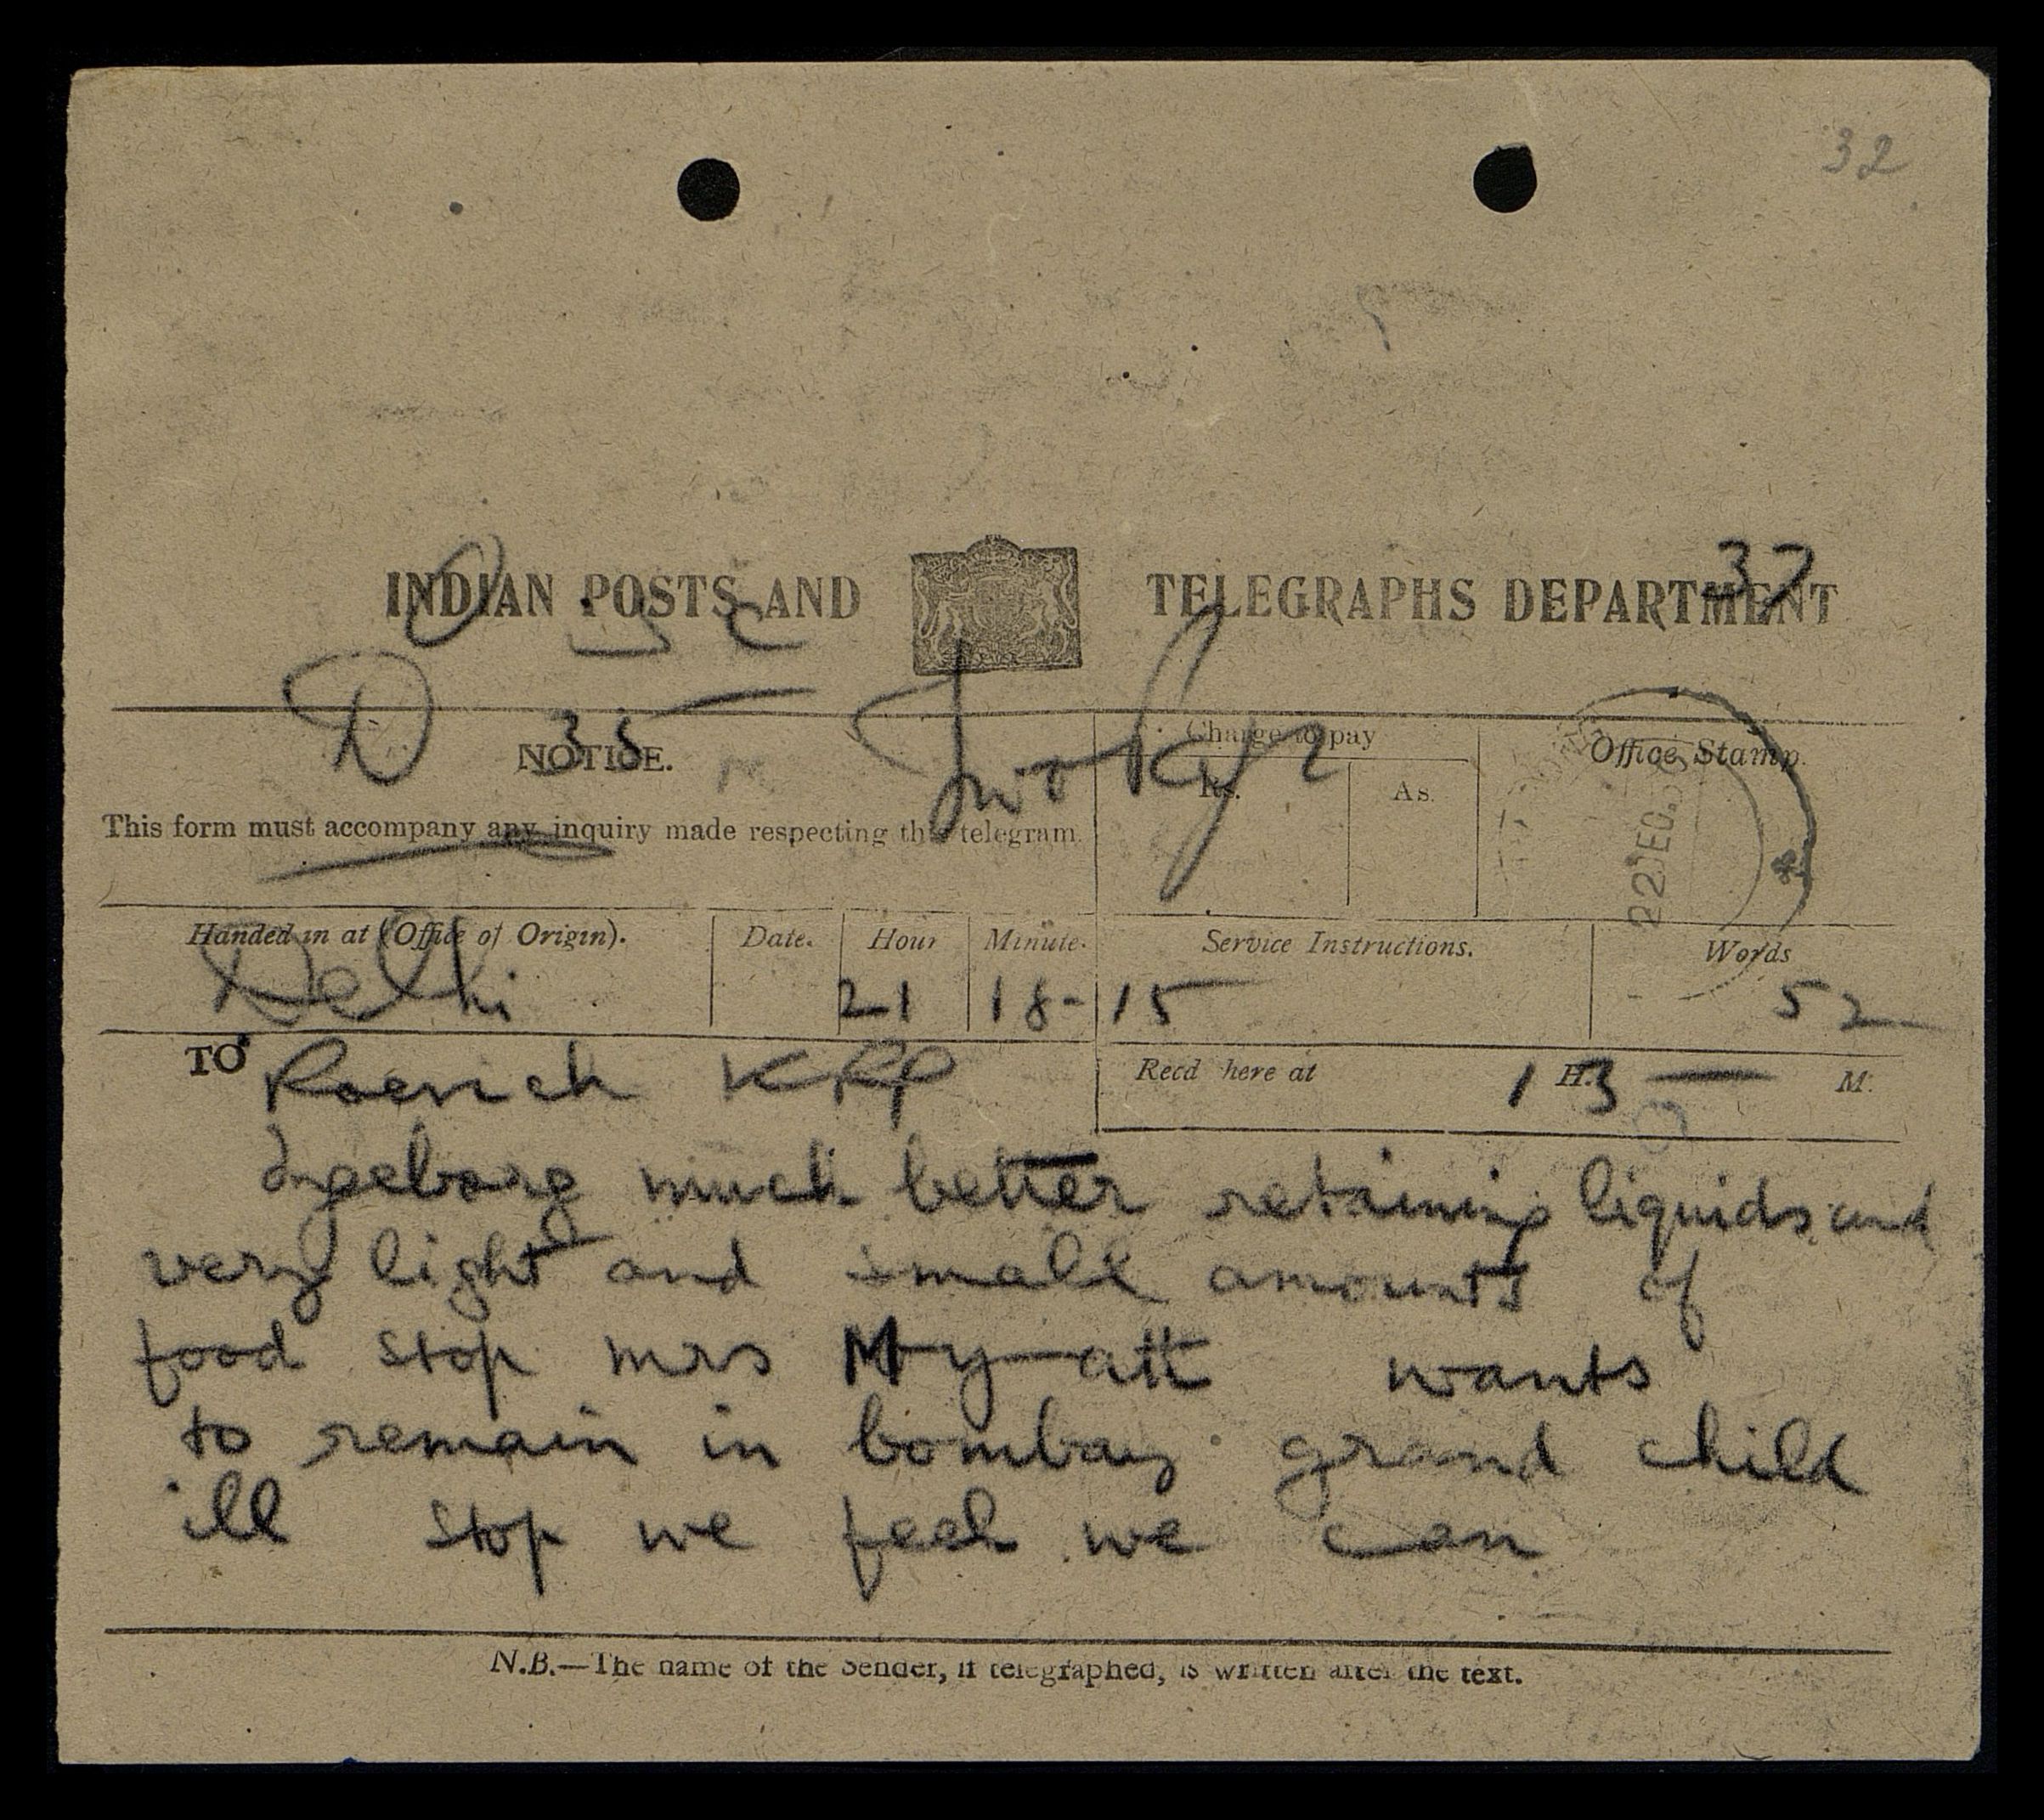 32
INDIAN POSTS AND TELEGRAPHS DEPARTMENT
37
D 35
NOTICE.
Charge to pay
Rs. As.
Office Stamp.
22 DEC.
This form must accompany any inquiry made respecting this telegram.
Handed in at (Office of Origin). Date. Hour Minute. Service Instructions. Words
Delhi 21 18-15 52
TO Roerich KRP
Recd here at 13 H. — M.
Ingeborg much better retaining liquids and
very light and small amounts of
food stop mrs Myatt wants
to remain in bombay grand child
ill stop we feel we can
N.B.—The name of the Sender, if telegraphed, is written after the text.